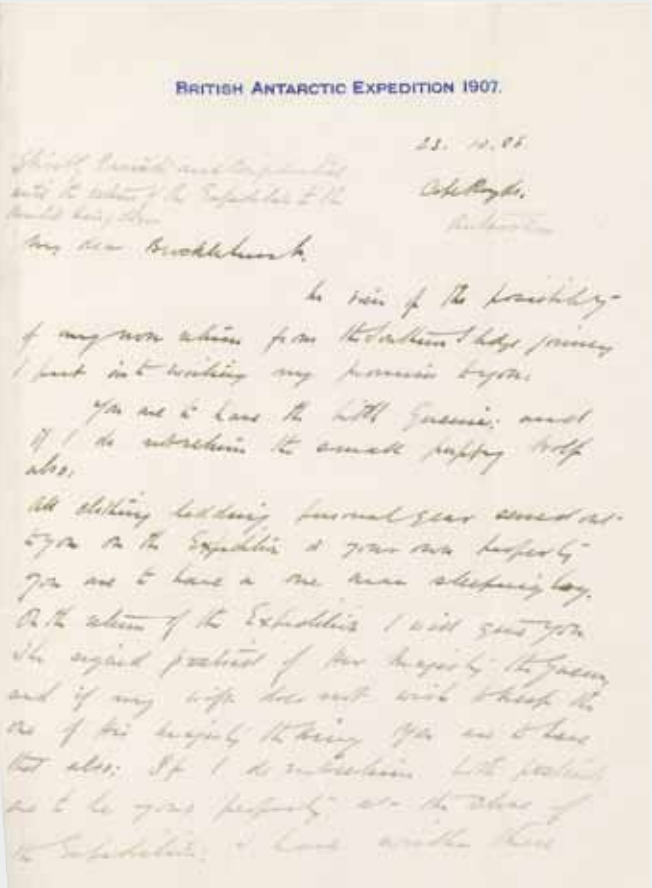 BRITISH ANTARCTIC EXPEDITION 1907.
23. 10. 08
Cape Royds.
Antarctica
Strictly Private and
until the return of the Expedition to the
United Kingdom
My dear Brocklehurst.
In view of the possibility
of my non return from the Southern Sledge journey
I put into writing my promises to you.
You are to have the little Queenie: and
if I do not return the small puppy Wolf
also:
All clothing bedding personal gear served out
to you on the Expedition is your own property
you are to have a one man sleeping bag.
On the return of the Expedition I will give you
the signed portrait of Her Majesty the Queen
and if my wife does not wish to keep the
one of His Majesty the King you are to have
that also: If I do not return both portraits
are to be your property on the return of
the Expedition: I have written this